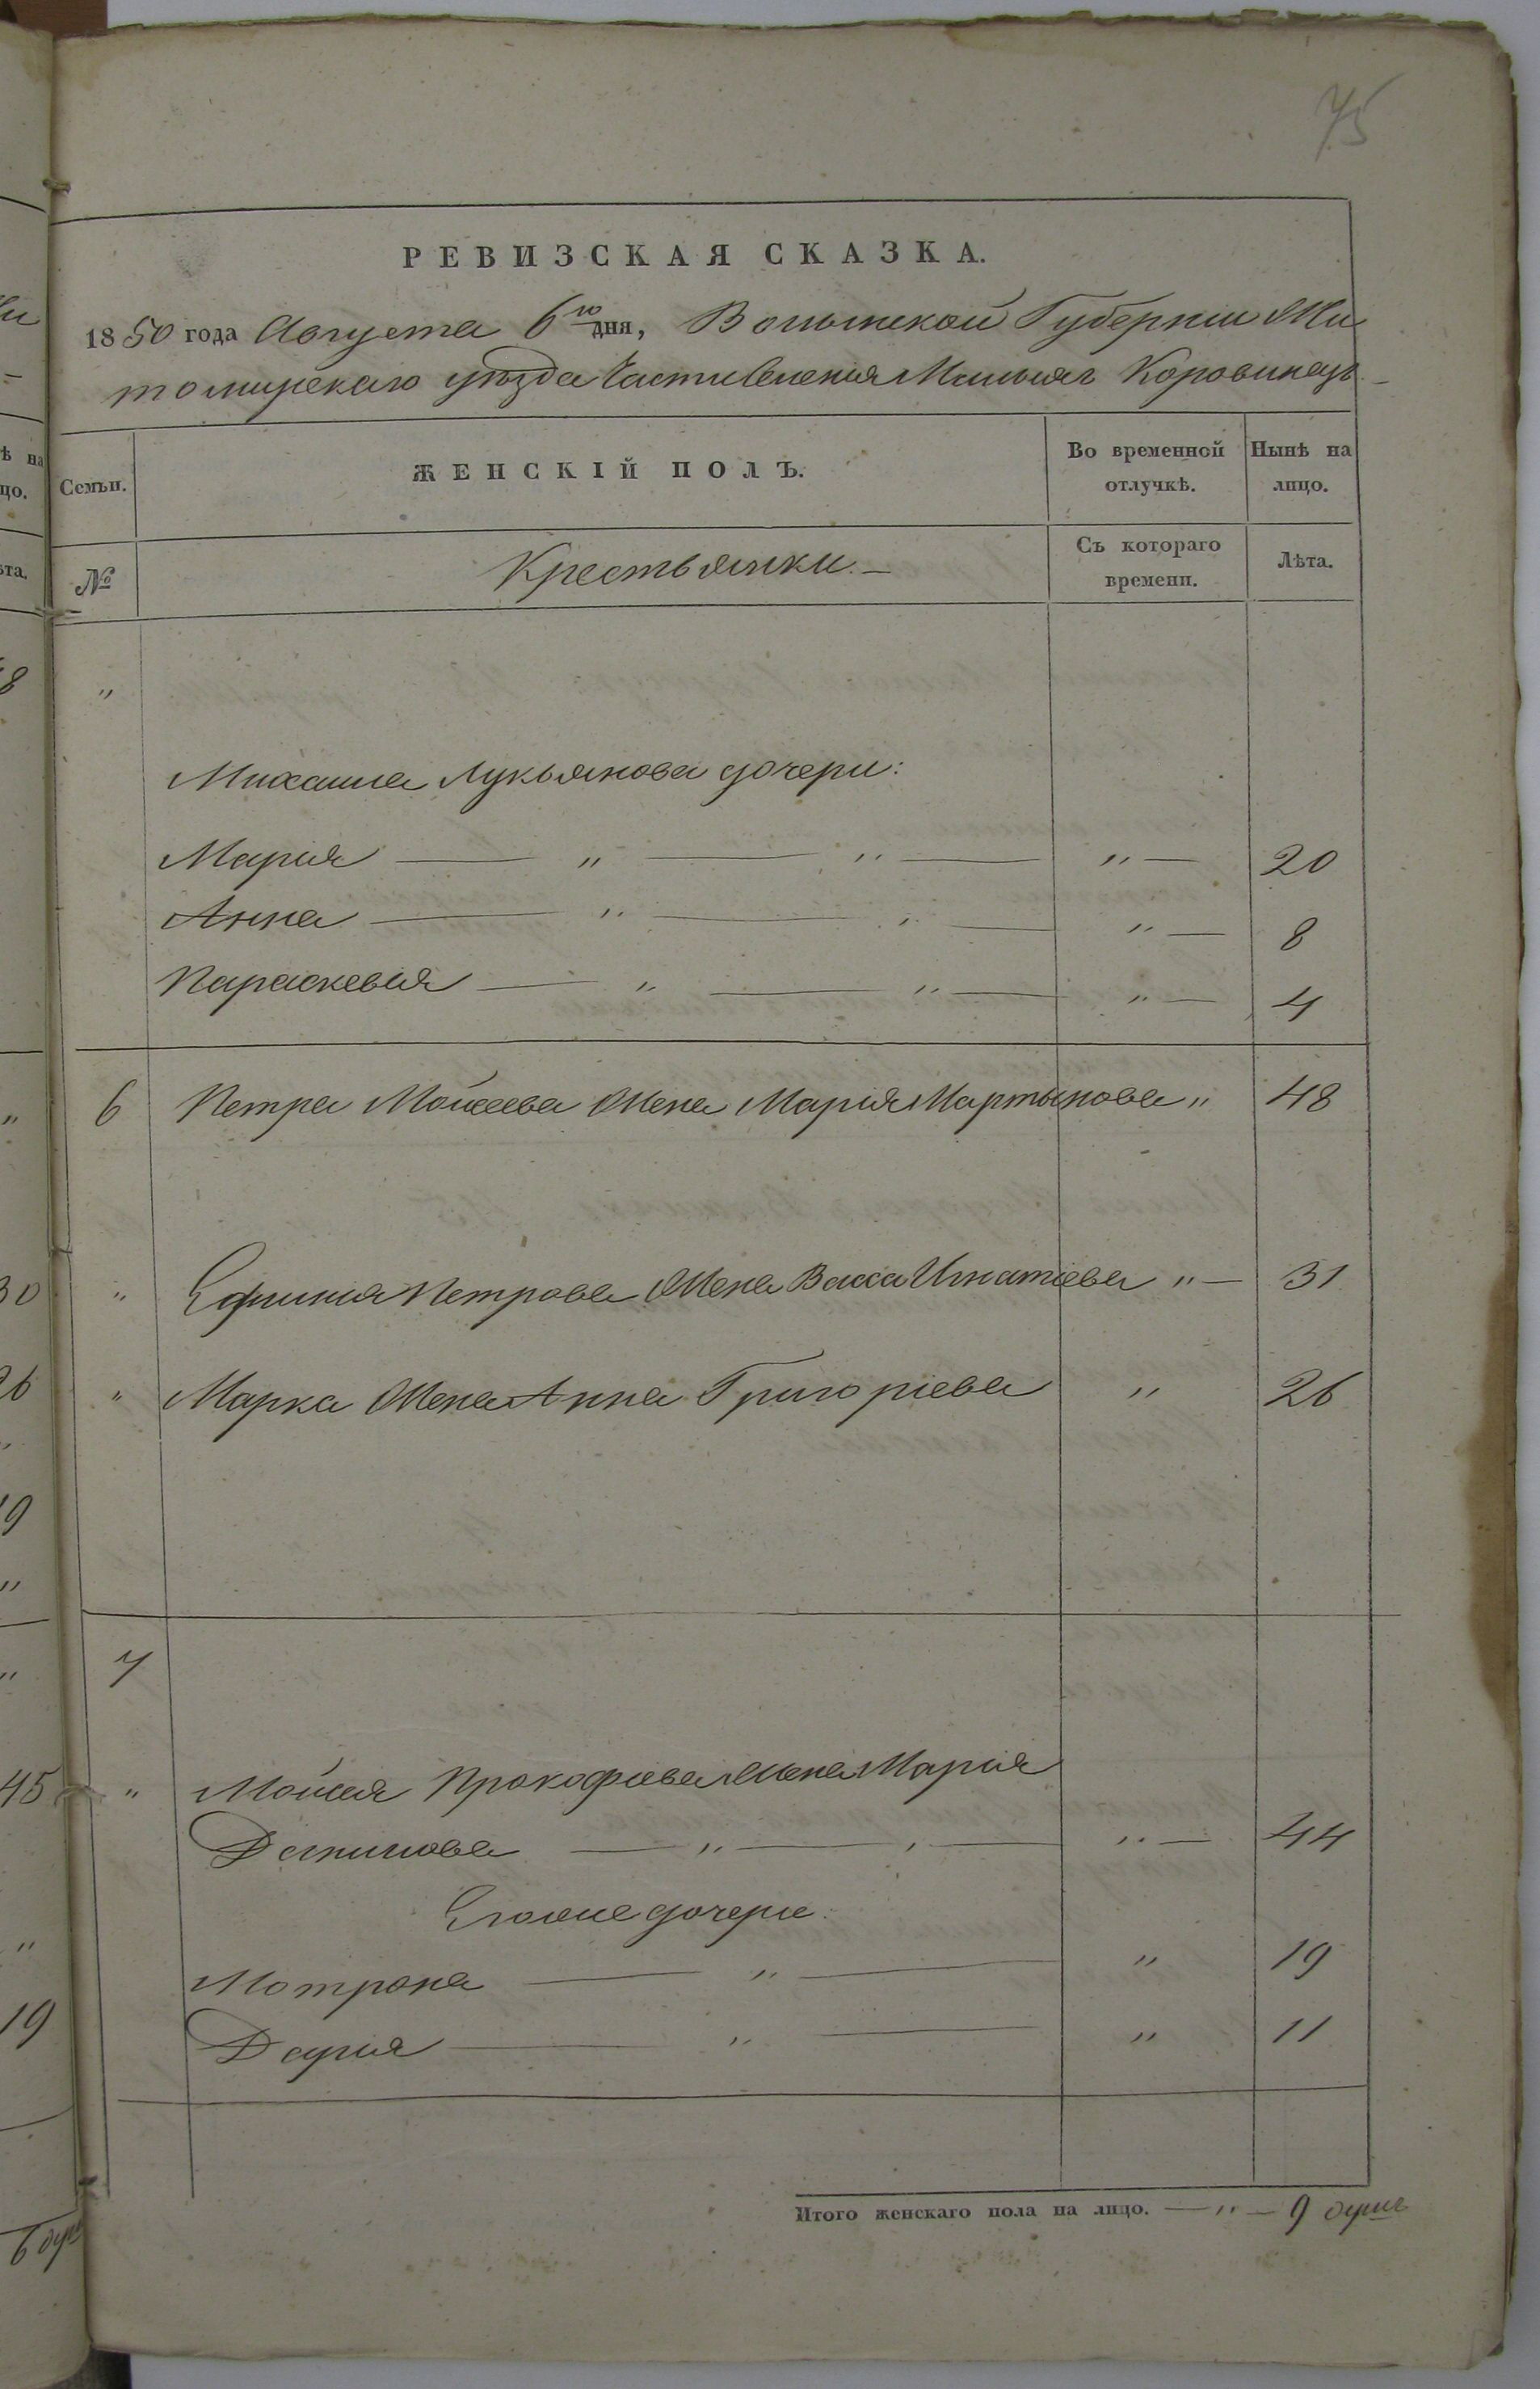 75
РЕВИЗСКАЯ СКАЗКА.
1850 года Августа 6го дня, Волынской Губерніи Жи
томирскаго уѣзда Части Селенія Малыхъ Коровинецъ
Семьи.
ЖЕНСКІЙ ПОЛЪ.
Во временной отлучкѣ.
Нынѣ на лицо.
№
Крестьянки.—
Съ котораго времени.
Лѣта.
"
Михаила Лукьянова дочери:
Марія — " — " — " — 20
Анна — " — " — " — 8
Параскевія — " — " — " — 4
6 Петра Мойсеева жена Марія Мартынова " 48
" Ефима Петрова жена Васса Игнатіева " — 31
" Марка жена Анна Григоріева " 26
7
" Мойсея Прокофіева жена Марія
Данилова — " — " — " — 44
Егоже дочери:
Мотрона — " — " 19
Дарія — " — " 11
Итого женскаго пола на лицо. — " — 9 душъ